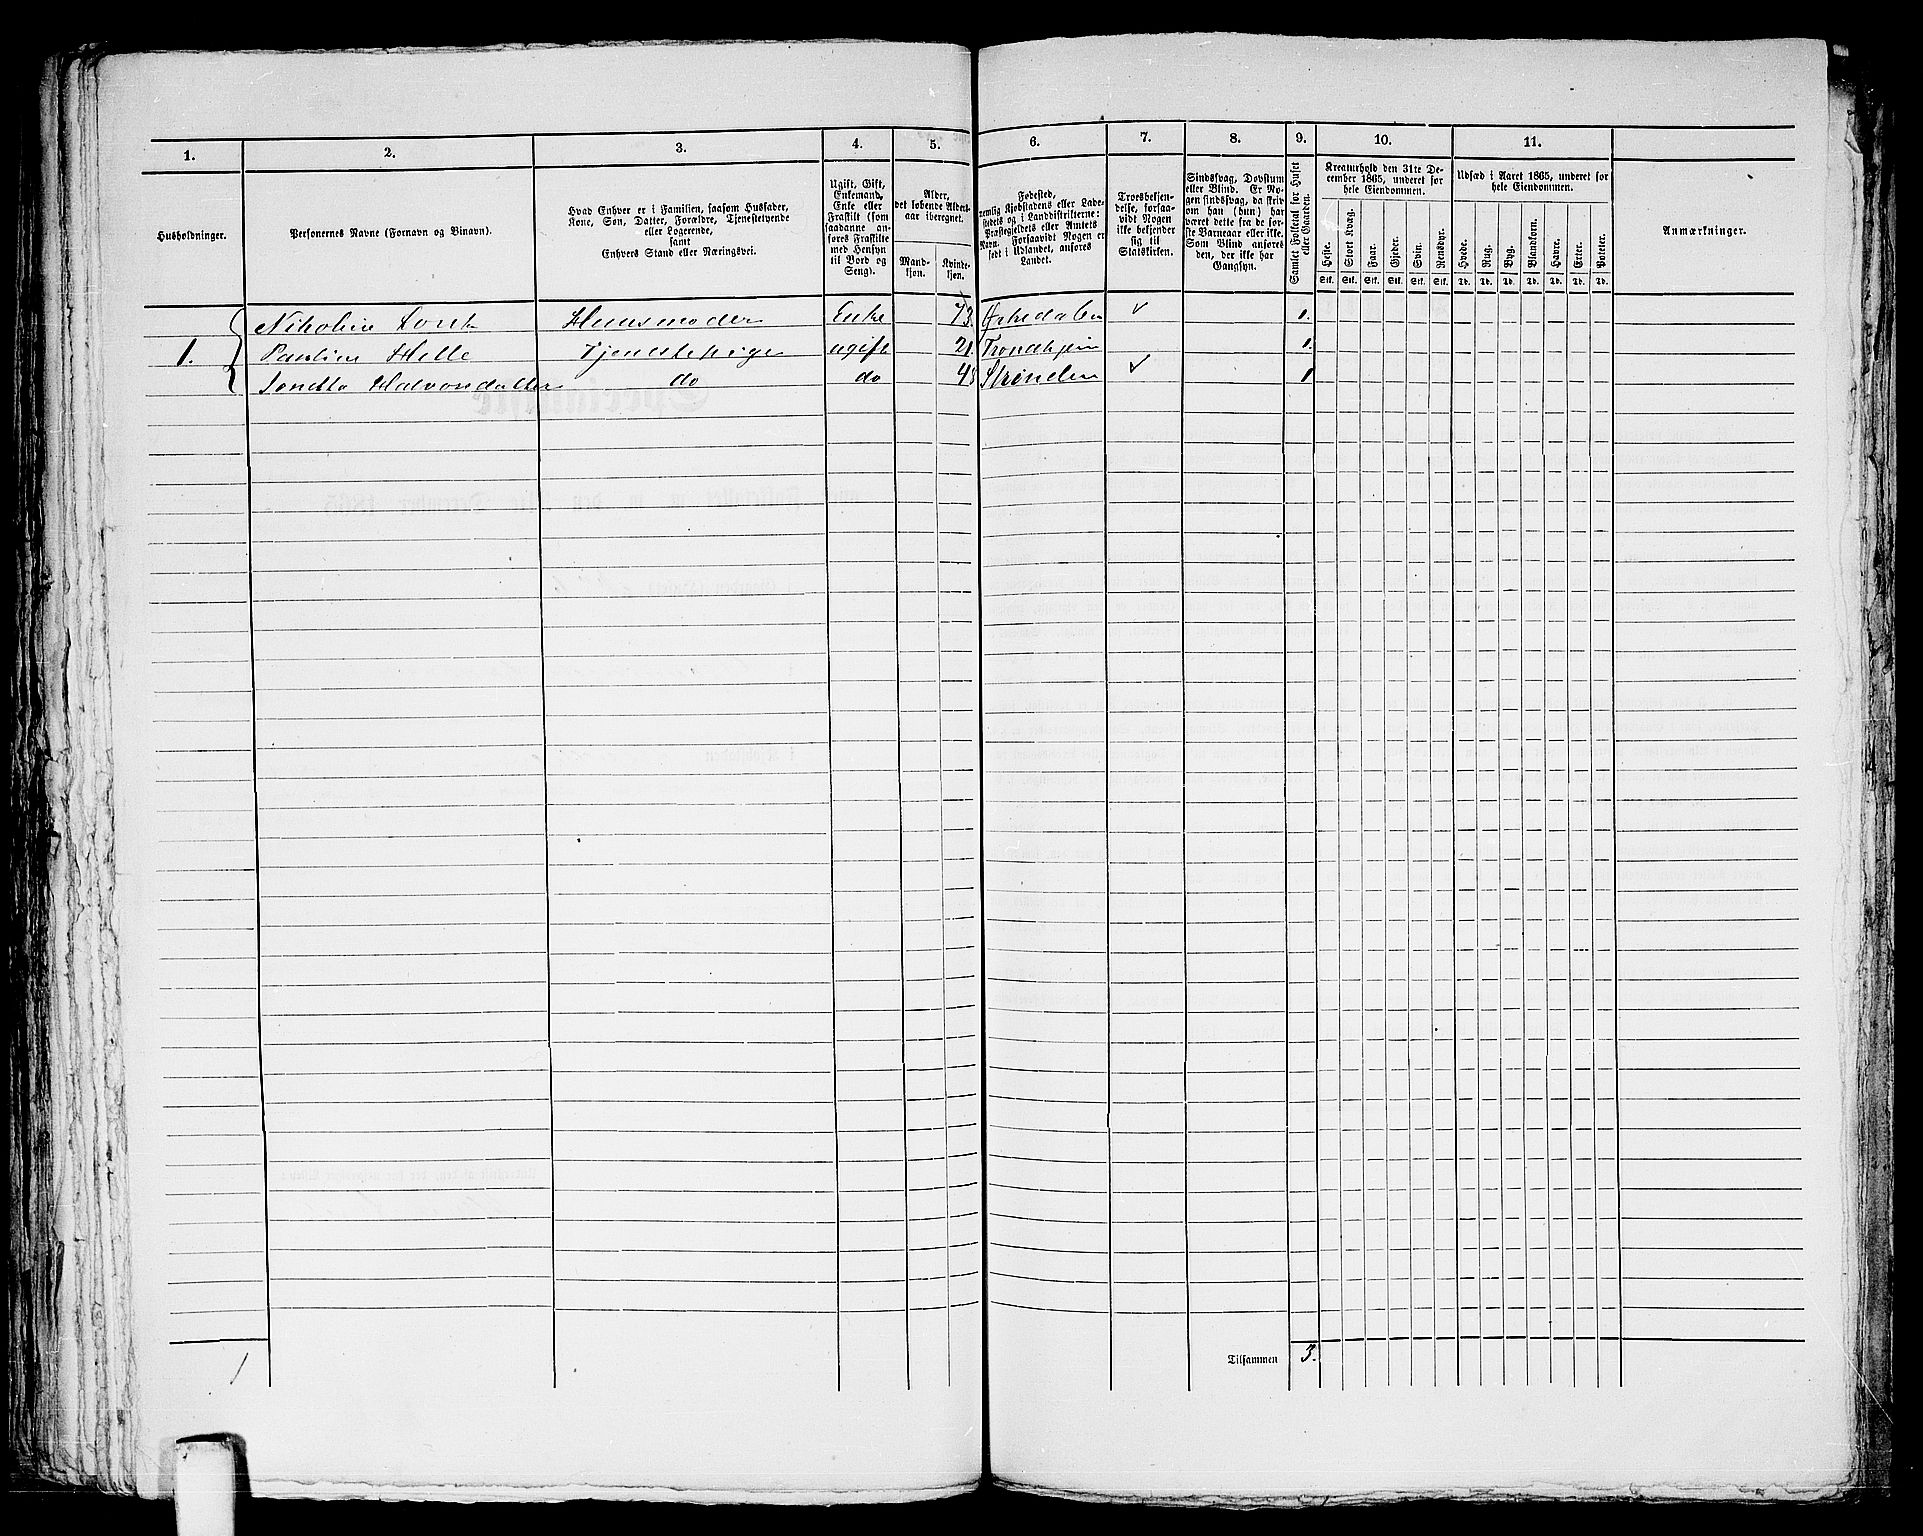 1. 2. 3. 4. 5. 6. 7. 8. 9. 10. 11.
Husholdninger.
Personernes Navne (Fornavn og Binavn).
Hvad Enhver er i Familien, saasom Husfader,
Kone, Søn, Datter, Forældre, Tjenestetyende
eller Logerende,
samt
Enhvers Stand eller Næringsvei.
Ugift, Gift,
Enkemand,
Enke eller
Fraskilt (som
saadanne an-
føres Fraskilte
med Hensyn
til Bord og
Seng).
Alder,
det løbende Alders-
aar iberegnet.
Mand-
kjøn.
Kvinde-
kjøn.
Fødested,
nemlig Kjøbstadens eller Lade-
stedets og i Landdistrikterne:
Præstegjeldets eller Amtets
Navn. Forsaavidt Nogen er
født i Udlandet, anføres
Landet.
Troesbekjen-
delse, forsaa-
vidt Nogen
ikke bekjender
sig til
Statskirken.
Sindssvag, Døvstum
eller Blind. Er No-
gen sindssvag, da skriv
om han (hun) har
været dette fra de før-
ste Barneaar eller ikke.
Som Blind anføres
den, der ikke har
Gangsyn.
Samlet Folketal for Huset
eller Gaarden.
Kreaturhold den 31te De-
cember 1865, underet for
hele Eiendommen.
Heste. Stort Kvæg. Faar. Gjeder. Svin. Rensdyr.
Stk. Stk. Stk. Stk. Stk. Stk.
Udsæd i Aaret 1865, underet for
hele Eiendommen.
Hvede. Rug. Byg. Blandkorn. Havre. Erter. Poteter.
Td. Td. Td. Td. Td. Td. Td.
Anmærkninger.
Nikoline Huusmoder Enke 73. Ørkedalen 1.
1. Pauline Helle Tjenstepige ugift 21. Trondhjem 1.
Halvorsdatter do do Strinden 1
Tilsammen 3.
1